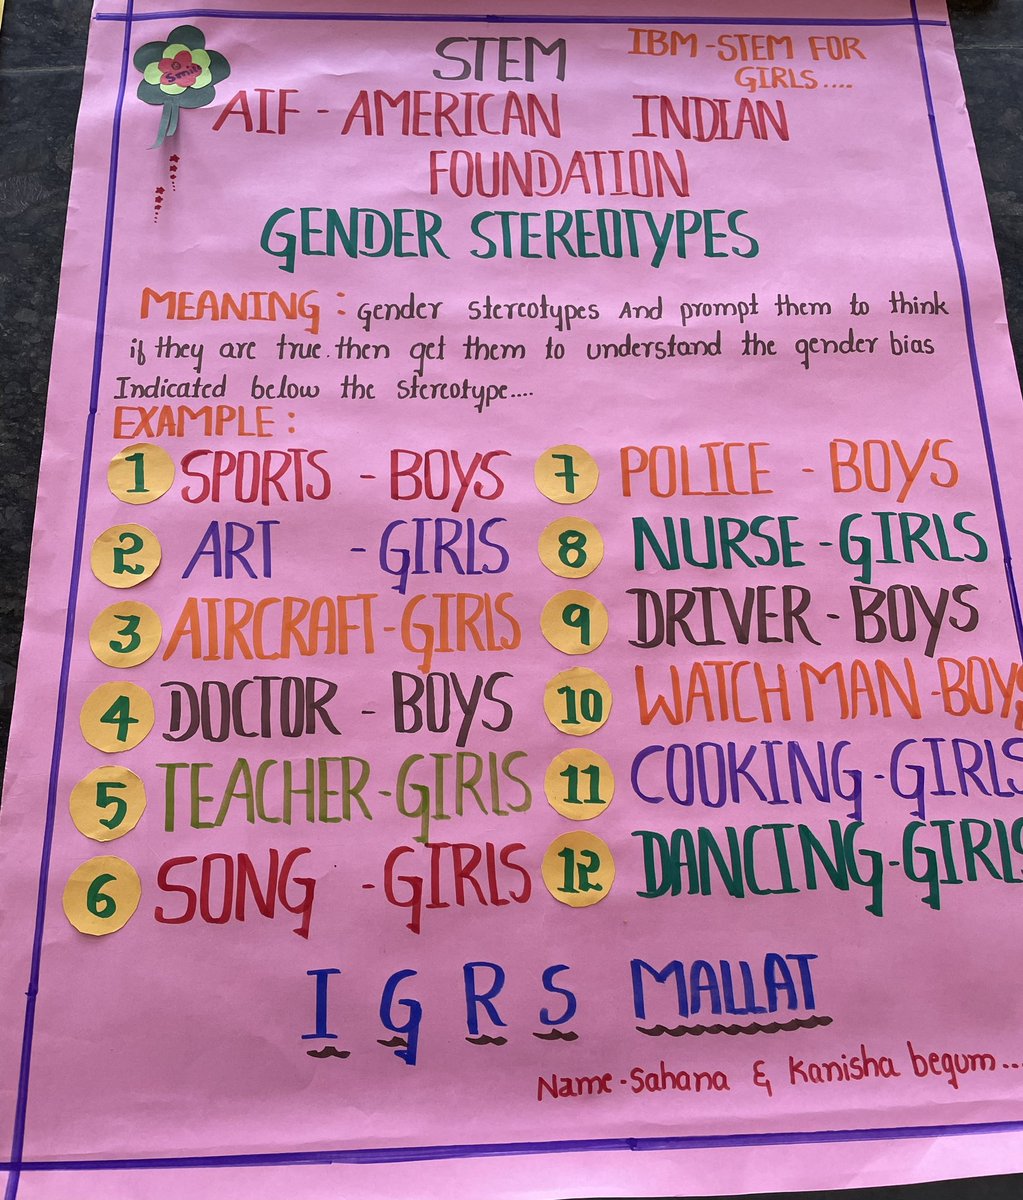 STEM
IBM-STEM FOR
GIRLS....
Smile
AIF - AMERICAN INDIAN
FOUNDATION
GENDER STEREOTYPES
MEANING : Gender stereotypes And prompt them to think
if they are true. then get them to understand the gender bias
Indicated below the stereotype....
EXAMPLE :
1 SPORTS - BOYS
2 ART - GIRLS
3 AIRCRAFT-GIRLS
4 DOCTOR - BOYS
5 TEACHER-GIRLS
6 SONG - GIRLS
7 POLICE - BOYS
8 NURSE-GIRLS
9 DRIVER-BOYS
10 WATCH MAN-BOYS
11 COOKING-GIRLS
12 DANCING-GIRLS
I G R S MALLAT
Name-Sahana & Kanisha begum...